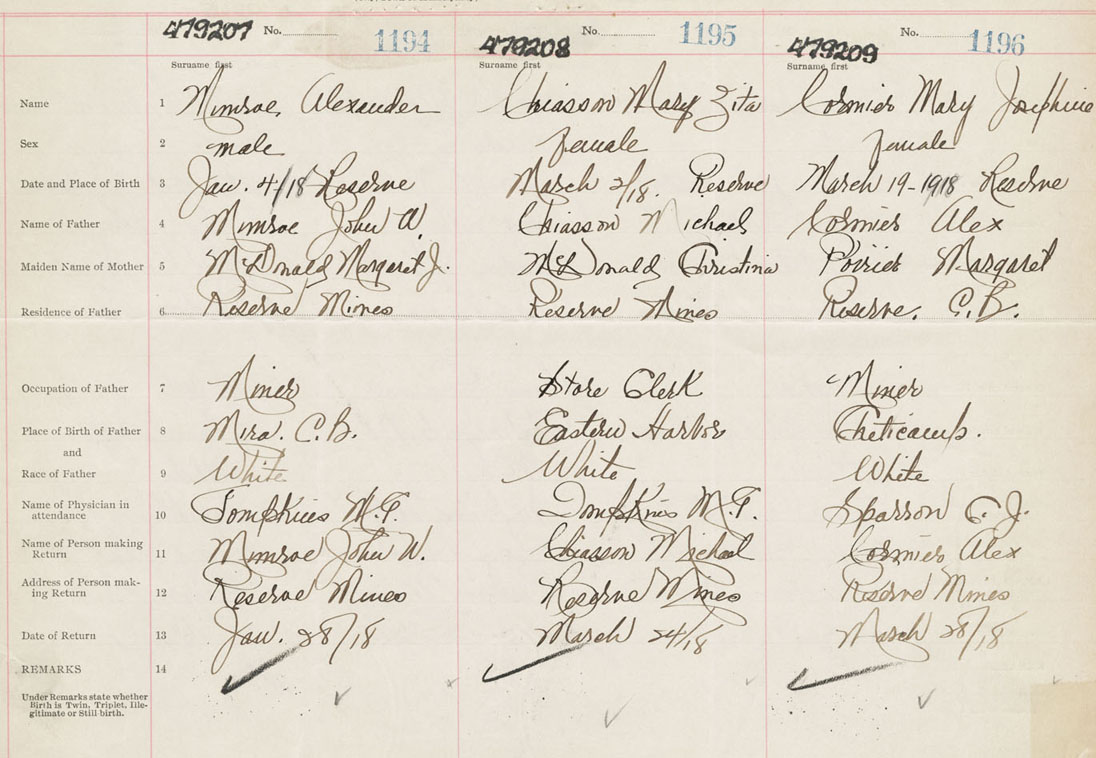 479207 No. 1194 479208 No. 1195 479209 No. 1196
Surname first Surname first Surname first
Name 1 Mimroe, Alexander Chiasson Mary Zita Cormier Mary Josephine
Sex 2 male female female
Date and Place of Birth 3 Jan. 4/18 Reserve March 2/18. Reserve March 19-1918 Reserve
Name of Father 4 Mimroe John W. Chiasson Michael Cormier Alex
Maiden Name of Mother 5 McDonald Margaret J. McDonald Christina Poirier Margaret
Residence of Father 6 Reserve Mines Reserve Mines Reserve. C.B.
Occupation of Father 7 Miner Store Clerk Miner
Place of Birth of Father 8 Mira. C.B. Eastern Harbor Cheticamp.
and
Race of Father 9 White White White
Name of Physician in
attendance 10 Tompkins M.F. Tompkins M.F. Sparrow C.J.
Name of Person making
Return 11 Mimroe John W. Chiasson Michael Cormier Alex
Address of Person mak-
ing Return 12 Reserve Mines Reserve Mines Reserve Mines
Date of Return 13 Jan. 28/18 March 24/18 March 28/18
REMARKS 14
Under Remarks state whether
Birth is Twin, Triplet, Ille-
gitimate or Still birth.